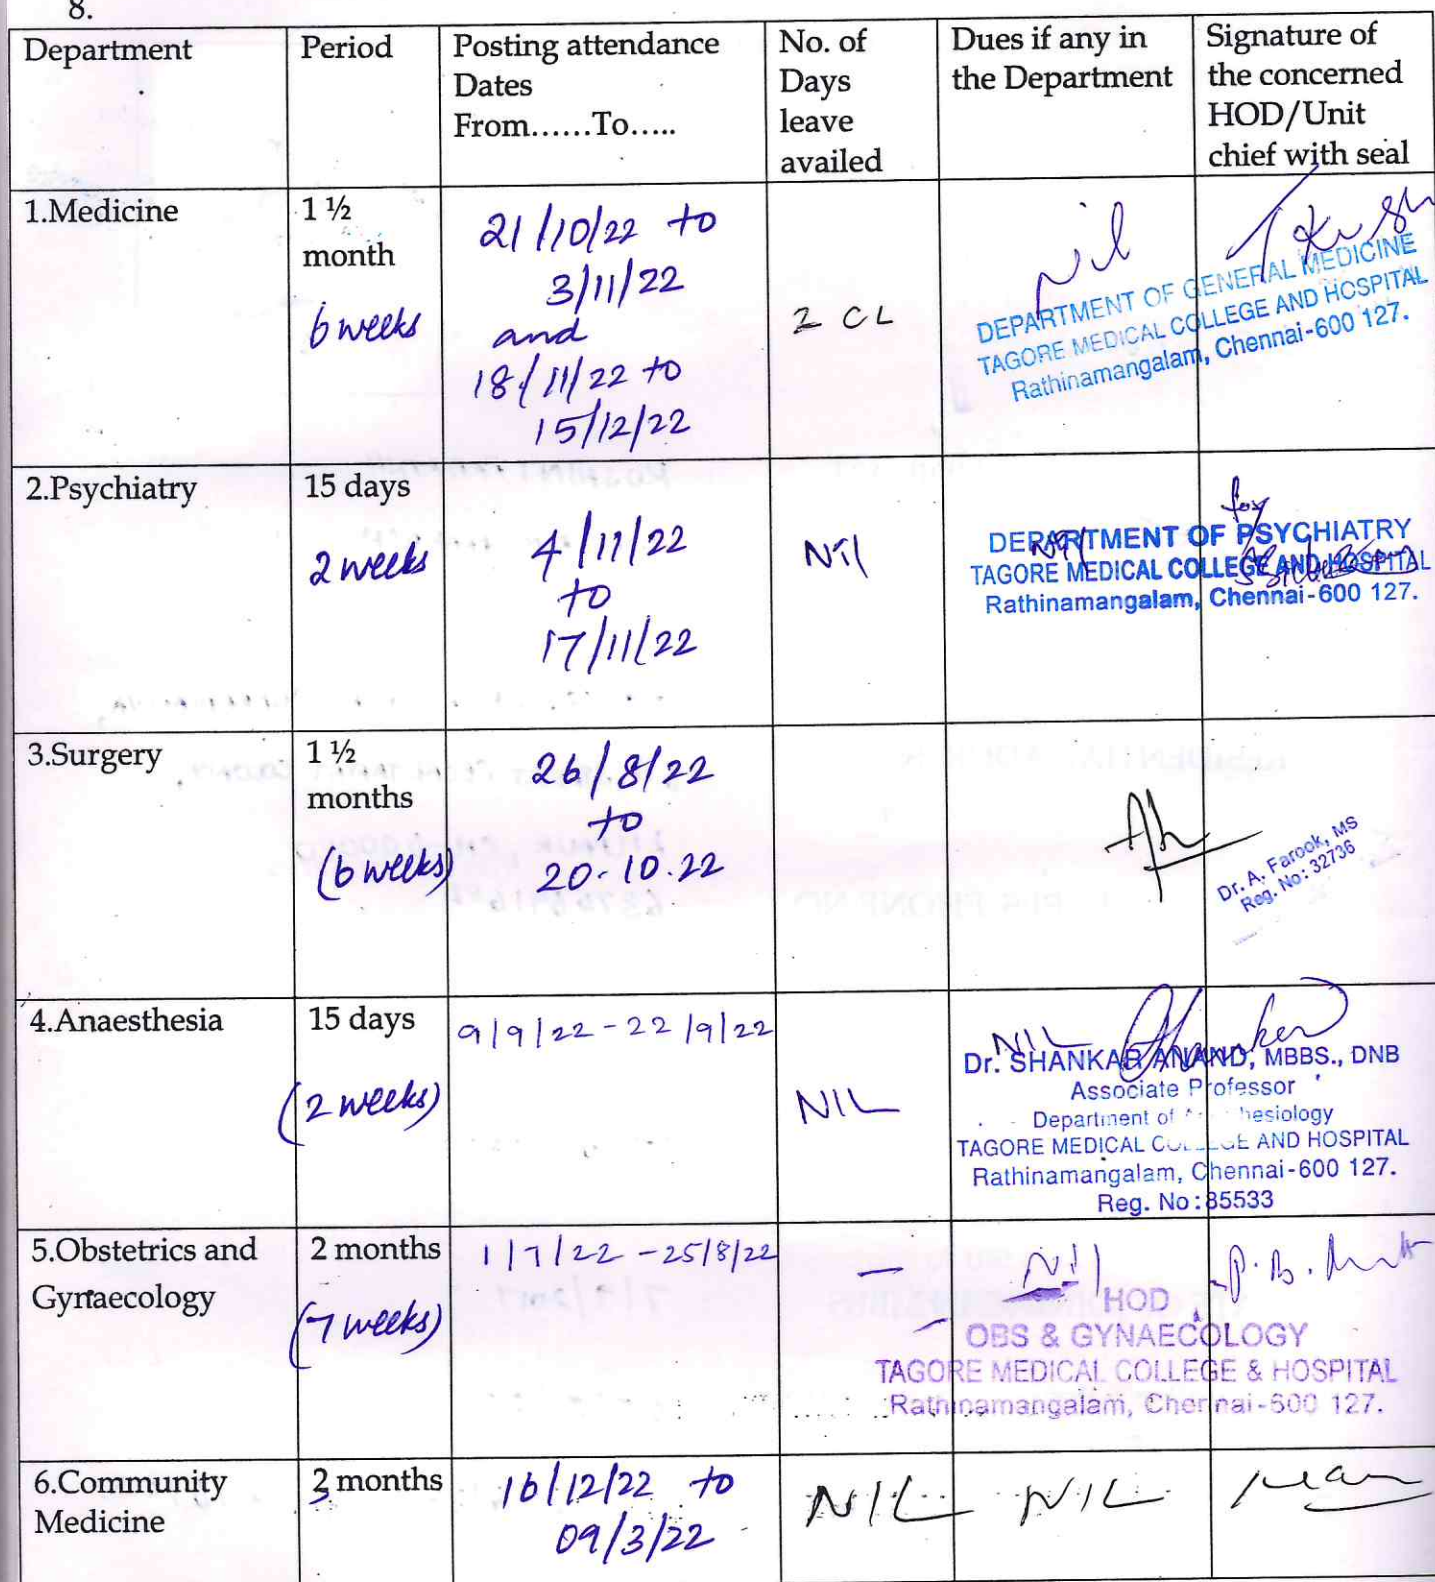 8.
Department
Period
Posting attendance
Dates
From......To.....
No. of
Days
leave
availed
Dues if any in
the Department
Signature of
the concerned
HOD/Unit
chief with seal
1.Medicine
1 ½
month
6 weeks
21/10/22 to
3/11/22
and
18/11/22 to
15/12/22
2 CL
Nil
DEPARTMENT OF GENERAL MEDICINE
TAGORE MEDICAL COLLEGE AND HOSPITAL
Rathinamangalam, Chennai-600 127.
2.Psychiatry
15 days
2 weeks
4/11/22
to
17/11/22
Nil
for
DEPARTMENT OF PSYCHIATRY
TAGORE MEDICAL COLLEGE AND HOSPITAL
Rathinamangalam, Chennai-600 127.
3.Surgery
1 ½
months
(6 weeks)
26/8/22
to
20.10.22
Dr. A. Farook, MS
Reg. No: 32736
4.Anaesthesia
15 days
(2 weeks)
9/9/22-22/9/22
NIL
NIL
Dr. SHANKAR ANAND, MBBS., DNB
Associate Professor
Department of hesiology
TAGORE MEDICAL COLLEGE AND HOSPITAL
Rathinamangalam, Chennai-600 127.
Reg. No:85533
5.Obstetrics and
Gynaecology
2 months
(7 weeks)
1/7/22-25/8/22
—
Nil
HOD
OBS & GYNAECOLOGY
TAGORE MEDICAL COLLEGE & HOSPITAL
Rathinamangalam, Chennai-600 127.
6.Community
Medicine
3 months
16/12/22 to
09/3/22
NIL
NIL